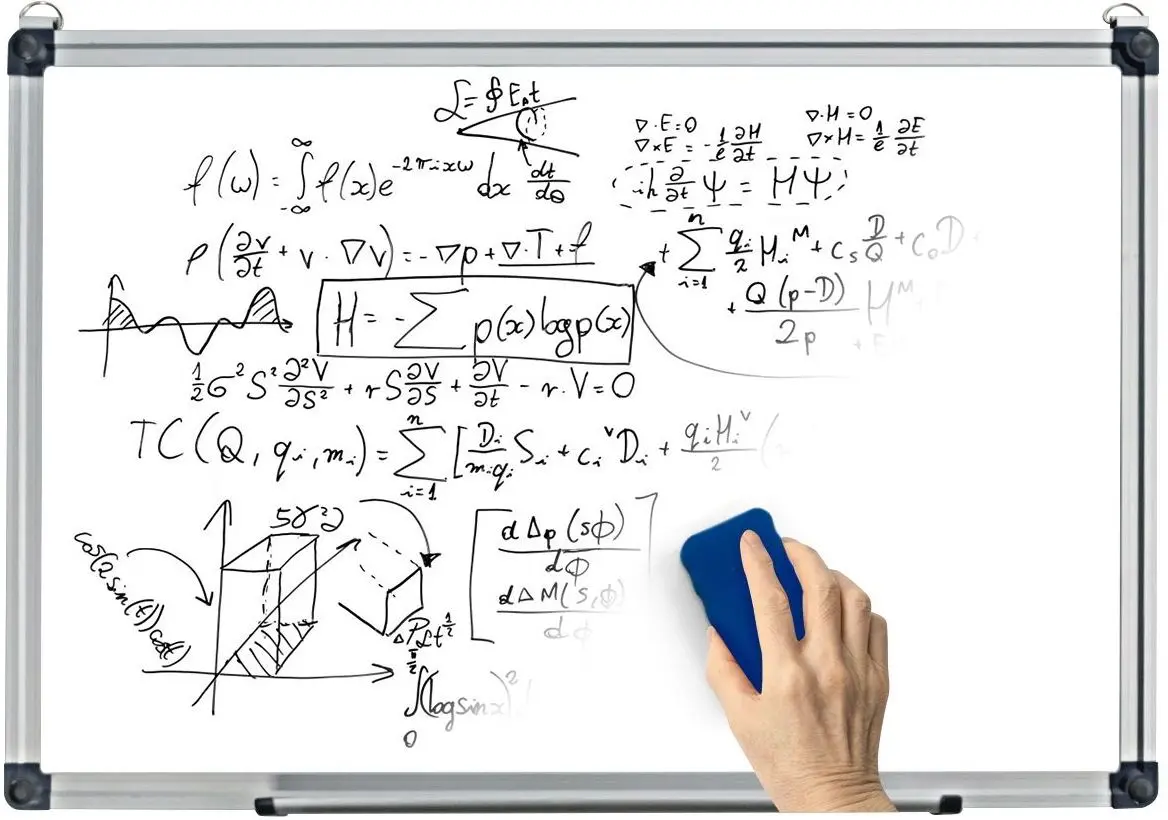 ℒ = ∮ E₁t
∇·E=0 ∇·H=0
∇×E = -1/e ∂H/∂t ∇×H = 1/e ∂E/∂t
f(ω) = ∫_{-∞}^{∞} f(x)e^{-2πixω} dx dt/dθ
iħ ∂/∂t Ψ = HΨ
ρ(∂v/∂t + v · ∇v) = -∇p + ∇·T + f
+ Σ_{i=1}^{n} q_i/2 H_i^M + c_s D/Q + c_o D +
+ Q(p-D)/2p H^M +
H = -Σ p(x) log p(x)
1/2 σ²S² ∂²V/∂S² + rS ∂V/∂S + ∂V/∂t - r·V = 0
TC(Q, q_i, m_i) = Σ_{i=1}^{n} [D_i/(m_i q_i) S_i + c_i^v D_i + q_i H_i^v/2 (
5γ²∂
cos(2sin(t))cos(t)
[ dΔp(sϕ)/dϕ ]
dΔM(s,ϕ)/dϕ
ΔPℒt^{1/2}
∫_0^{π/2} (log sin x)²